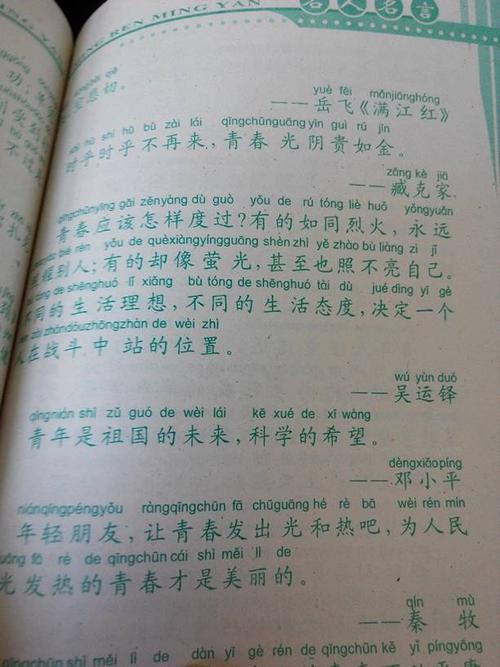 REN MING YAN
名人名言
悲切。
yuè fēi mǎnjiānghóng
——岳飞《满江红》
shí hū shí hū bù zài lái qīngchūnguāng yīn guì rú jīn
时乎时乎不再来，青春光阴贵如金。
zāng kè jiā
——臧克家
qīngchūnyīng gāi zěnyàng dù guò yǒu de rú tóng liè huǒ yǒngyuǎn
青春应该怎样度过？有的如同烈火，永远
bié rén yǒu de quèxiàngyíngguāng shèn zhì yě zhào bù liàng zì jǐ
照耀别人；有的却像萤光，甚至也照不亮自己。
tóng de shēnghuó lǐ xiǎng bù tóng de shēnghuó tài dù jué dìng yī gè
不同的生活理想，不同的生活态度，决定一个
zài zhàndòuzhōngzhàn de wèi zhì
人在战斗中站的位置。
wú yùn duó
——吴运铎
qīngnián shì zǔ guó de wèi lái kē xué de xī wàng
青年是祖国的未来，科学的希望。
dèngxiǎopíng
——邓小平
niánqīngpéngyǒu ràngqīngchūn fā chūguāng hé rè bā wèi rén mín
年轻朋友，让青春发出光和热吧，为人民
guāng fā rè de qīngchūn cái shì měi lì de
光发热的青春才是美丽的。
qín mù
——秦牧
qīngchūn shì měi lì de dàn yī gè rén de qīngchūn kě yǐ píngyōng